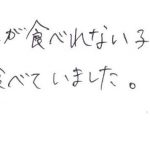 が食べれない子
食べていました。